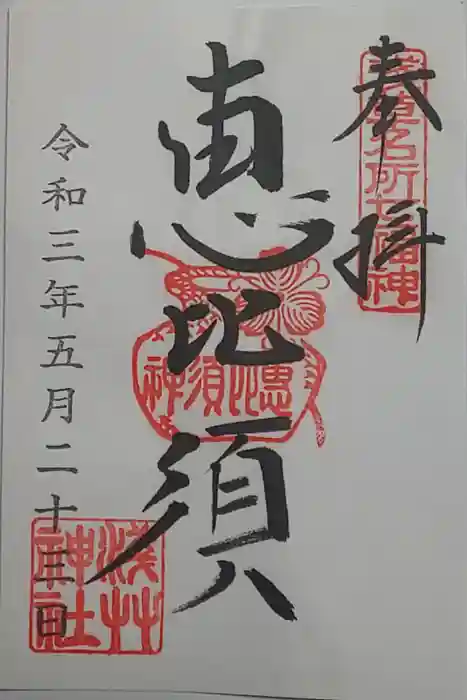 奉拝
浅草名所七福神
恵比須
惠比須神
令和三年五月二十三日
淺艸神社